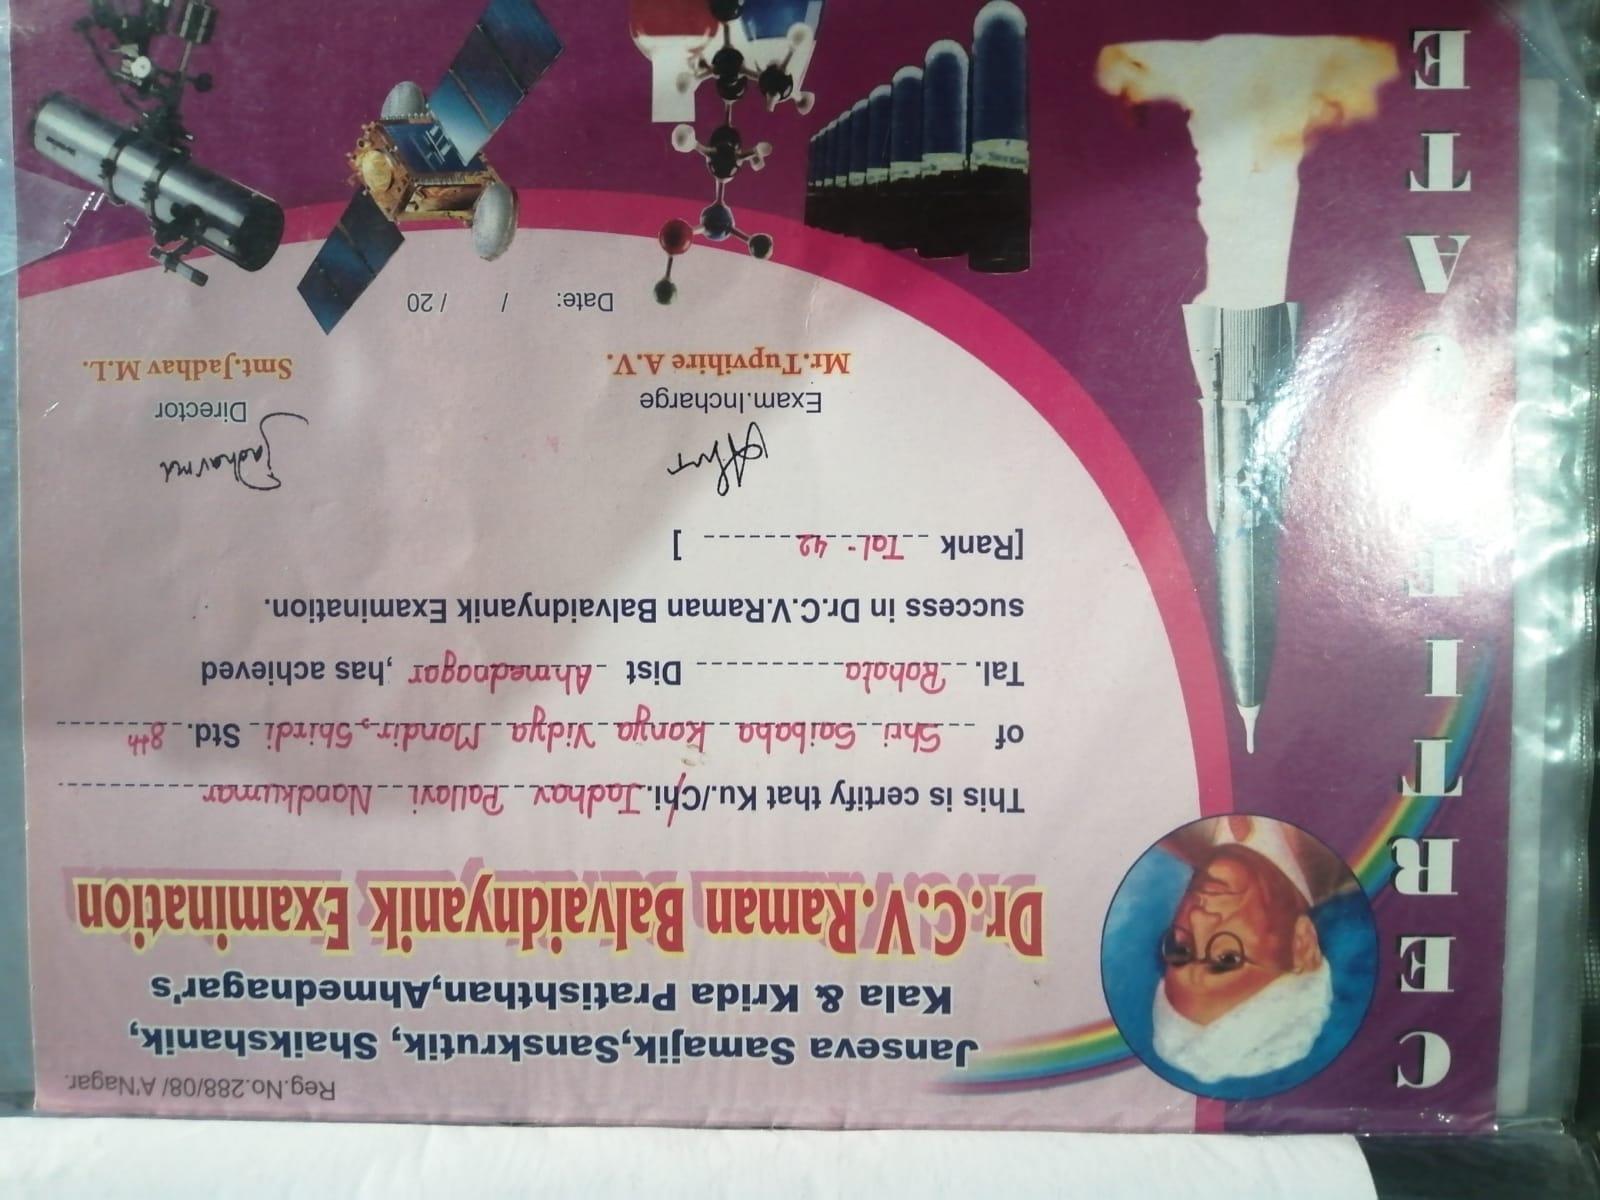 CERTIFICATE
Reg.No.288/08/ A'Nagar.
Janseva Samajik,Sanskrutik, Shaikshanik,
Kala & Krida Pratishthan,Ahmednagar's
Dr.C.V.Raman Balvaidnyanik Examination
This is certify that Ku./Chi. Jadhav Pallavi Nandkumar
of Shri Saibaba Kanya Vidya Mandir, Shirdi Std. 8th
Tal. Rahata Dist Ahmednagar ,has achieved
success in Dr.C.V.Raman Balvaidnyanik Examination.
[Rank Tal- 42 ]
Jadhav ML
Exam.Incharge Director
Mr.Tupvihire A.V. Smt.Jadhav M.L.
Date: / / 20